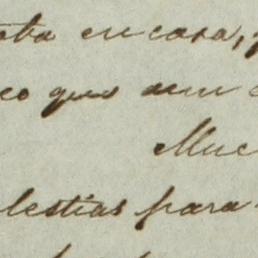 en casa,
co que aun
Muc
lestias para